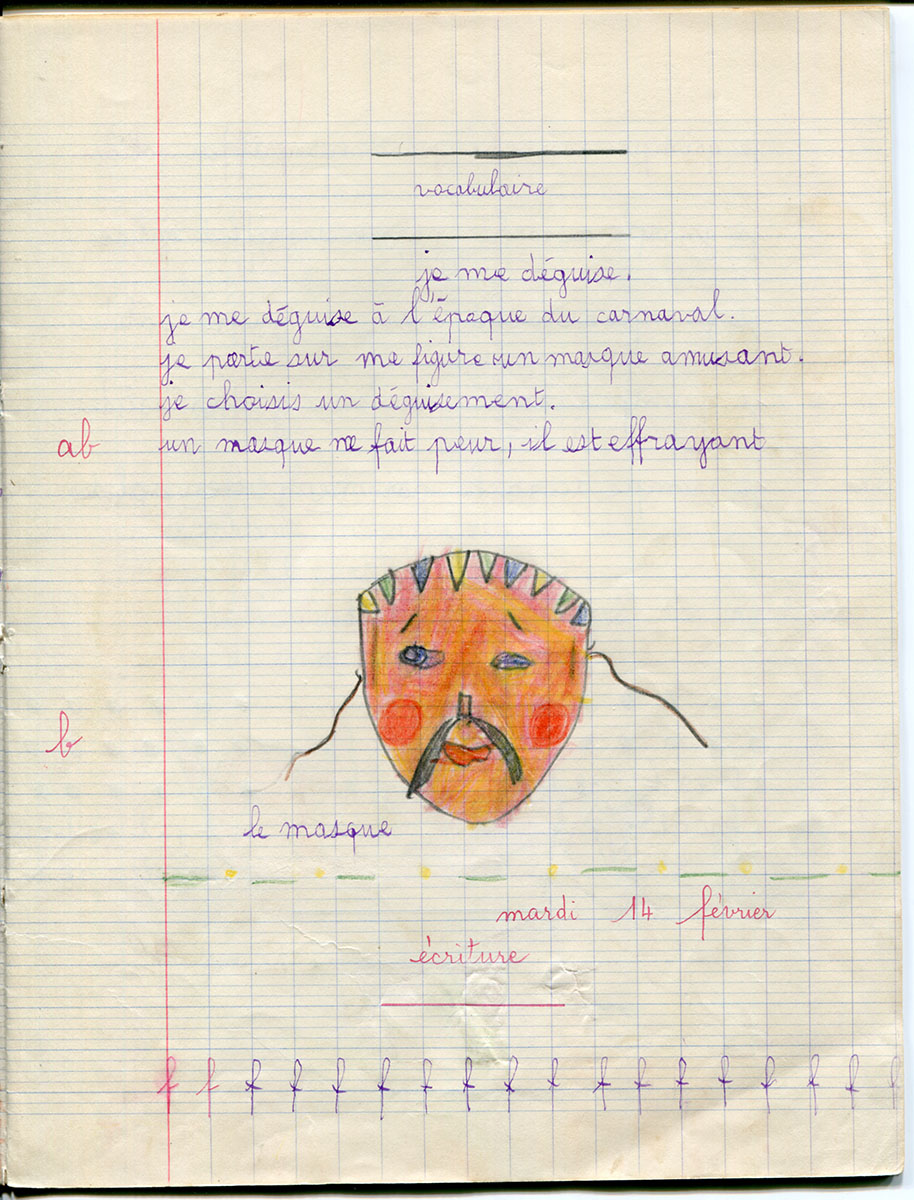 vocabulaire
je me déguise.
je me déguise à l'époque du carnaval.
je porte sur me figure un masque amusant.
je choisis un déguisement.
ab
un masque ne fait peur, il est effrayant
b
le masque
mardi 14 février
écriture
f f f f f f f f f f f f f f f f f f